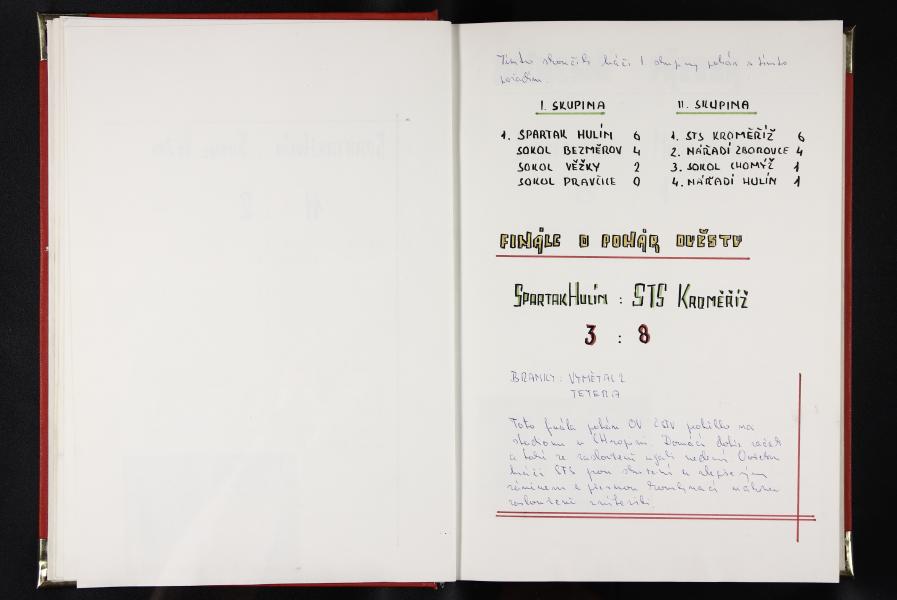 Tímto skončili hráči 1 skupiny pohár s tímto
pořadím.
I. SKUPINA
1. SPARTAK HULÍN 6
SOKOL BEZMĚROV 4
SOKOL VĚŽKY 2
SOKOL PRAVČICE 0
II. SKUPINA
1. STS KROMĚŘÍŽ 6
2. NÁŘADÍ ZBOROVICE 4
3. SOKOL CHOMÝŽ 1
4. NÁŘADÍ HULÍN 1
FINÁLE O POHÁR OVČSTV
SPARTAK HULÍN : STS KROMĚŘÍŽ
3 : 8
BRANKY: VYMĚTAL 2
TETERA
Toto finále poháru OV ČSTV proběhlo na
stadionu v Chropyni. Domácí dobře začali
a také se zaslouženě ujali vedení
hráči STS jsou zkušení a
a přesnou kombinací
zaslouženě zvítězili.